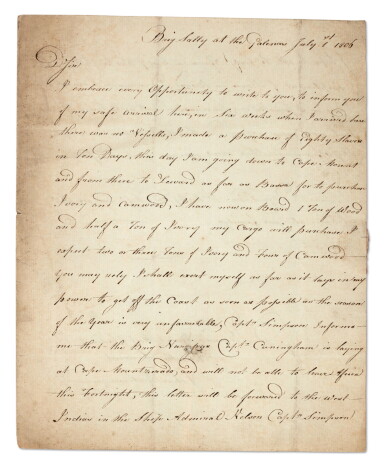 Brig Sally at the Galenas July 1st 1806
D Sir
I embrace every Opportunity to write to you, to inform you
of my safe arrival here, in Six weeks when I arrived here
there was no Vessells, I made a Purchase of Eighty Slaves
in Ten Days, this day I am going down to Cape Mount
and from there to Leward as far as Bassa for to purchase
Ivory and camwood, I have now on Board 1 Ton of Wood
and half a Ton of Ivory my Cargo will purchase I
expect two or three Tons of Ivory and Four of Camwood
You may rely I shall exert myself as far as it lays in my
power to get off the Coast as soon as possible as the season
of the Year is very unfavourable, Capt. Simpson Informs
me that the Brig Capt. Cuningham is laying
at Cape and will not be able to leave Africa
this fortnight, this letter will be forward to the West
Indies in the Ship Admiral Nelson Capt. Simpson